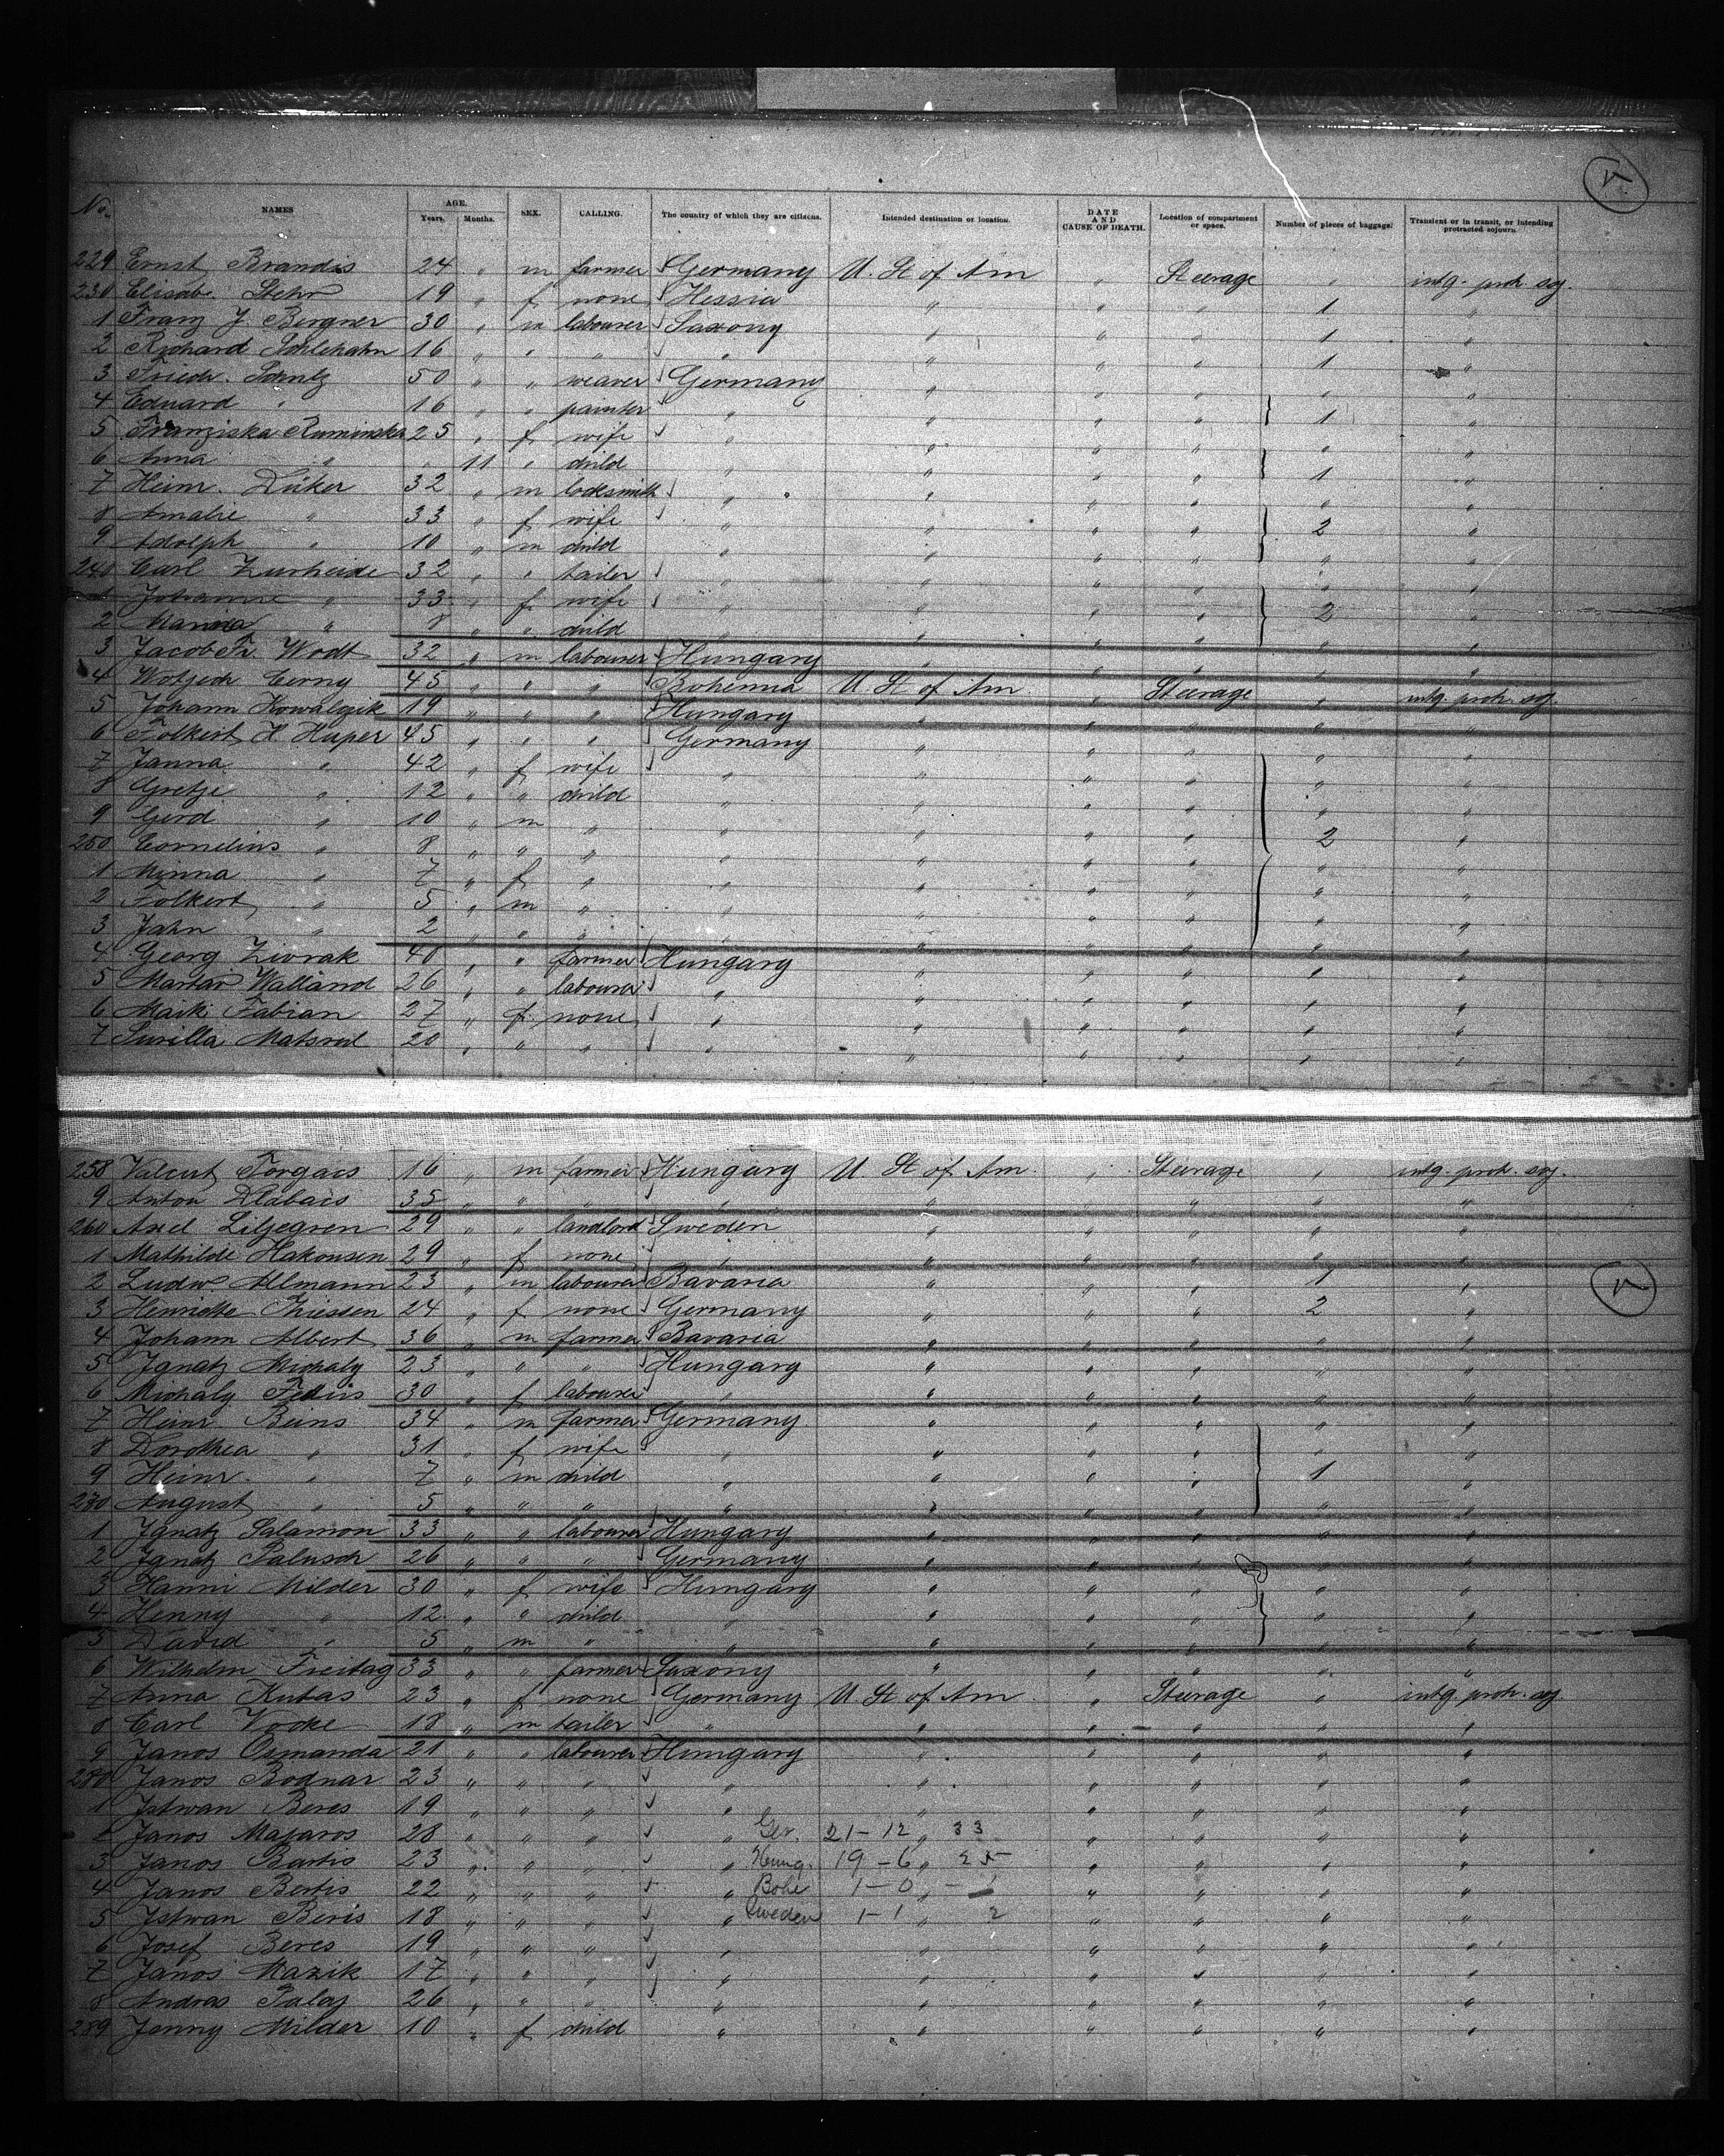 No. NAMES AGE. Years. Months. SEX. CALLING. The country of which they are citizens. Intended destination or location. DATE AND CAUSE OF DEATH. Location of compartment or space. Number of pieces of baggage. Transient or in transit, or intending protracted sojourn.
229 Ernst Brandis 24 " m farmer Germany U. St of Am " Steerage " intg. protr. soj.
230 Elisab. Stehr 19 " f none Hessia " " " 1 "
1 Franz J. Bergner 30 " m labourer Saxony " " " 1 "
2 Richard Schlehahn 16 " " " " " " " 1 "
3 Friedr. 50 " " weaver Germany " " " " "
4 Eduard " 16 " " painter " " " " 1 "
5 Franziska Ruminska 25 " f wife " " " " " "
6 Anna " " 11 " child " " " " 1 "
7 Heinr. Düker 32 " m locksmith " " " " " "
8 Amalie " 33 " f wife " " " " 2 "
9 Adolph " 10 " m child " " " " " "
240 Carl Zurheide 32 " " tailer " " " " " "
1 Johanne " 33 " f wife " " " " 2 "
2 " 8 " " child " " " " " "
3 Jacob Fr. Wodt 32 " m labourer Hungary " " " " "
4 Wotjech Cerny 45 " " " Bohemia U. St of Am " Steerage " intg. protr. soj.
5 Johann Kowalzik 19 " " " Hungary " " " " "
6 Folkert H. Huper 45 " " " Germany " " " " "
7 Janna " 42 " f wife " " " " " "
8 Gretje " 12 " " child " " " " " "
9 Gerd " 10 " m " " " " " " "
250 Cornelius " 8 " " " " " " " 2 "
1 Minna " 7 " f " " " " " " "
2 Folkert " 5 " m " " " " " " "
3 Jahn " 2 " " " " " " " " "
4 Georg Zivrak 40 " " farmer Hungary " " " " "
5 Walland 26 " " labourer " " " " " "
6 Maiki Fabian 27 " f none " " " " " "
7 20 " " " " " " " " "
258 Valcut Forgacs 16 " m farmer Hungary U. St of Am " Steerage " intg. protr. soj.
9 Anton Dlabais 35 " " " " " " " " "
260 Axel Liljegren 29 " " landlord Sweden " " " " "
1 Mathilde Hakonsen 29 " f none " " " " " "
2 Ludw. Allmann 23 " m labourer Bavaria " " " 1 "
3 Henriette Thiessen 24 " f none Germany " " " 2 "
4 Johann Albert 36 " m farmer Bavaria " " " " "
5 Ignatz Michaly 23 " " " Hungary " " " " "
6 Michaly 30 " f labourer " " " " " "
7 Heinr. Beins 34 " m farmer Germany " " " " "
8 Dorothea " 31 " f wife " " " " " "
9 Heinr. " 7 " m child " " " " 1 "
270 August " 5 " " " " " " " " "
1 Ignatz Salamon 33 " " labourer Hungary " " " " "
2 Ignatz Palusch 26 " " " Germany " " " " "
3 Hanni Milder 30 " f wife Hungary " " " " "
4 Henny " 12 " " child " " " " " "
5 David " 5 " m " " " " " " "
6 Wilhelm Freitag 33 " " farmer Saxony " " " " "
7 Anna Kubas 23 " f none Germany U. St of Am " Steerage " intg. protr. soj
8 Carl Vocke 18 " m tailer " " " " " "
9 Janos Osmanda 21 " " labourer Hungary " " " " "
280 Janos Bodnar 23 " " " " " " " " "
1 Istwan Beres 19 " " " " " " " " "
2 Janos Majaros 28 " " " " Ger. 21 - 12 " 33 " " " "
3 Janos Bartis 23 " " " " Hung. 19 - 6 " 25 " " " "
4 Janos Bertis 22 " " " " Bohe 1 - 0 " - 1 " " " "
5 Istwan Beris 18 " " " " Sweden 1 - 1 " 2 " " " "
6 Josef Beres 19 " " " " " " " " "
7 Janos Mazik 17 " " " " " " " " "
8 Andras Palaj 26 " " " " " " " " "
289 Jenny Milder 10 " f child " " " " " "